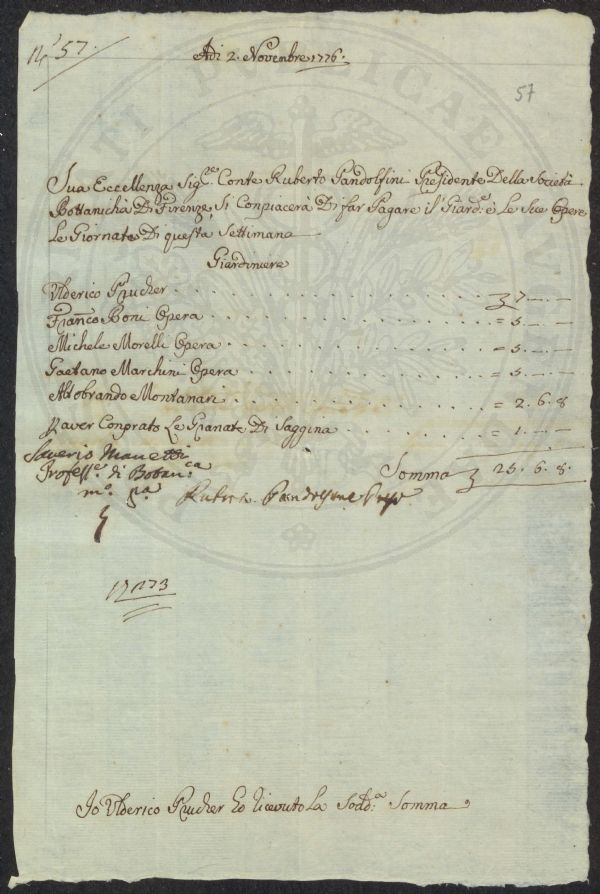 57.
Adi 2. Novembre 1776.
57
Sua Eccellenza Sig.re Conte Ruberto Pandolfini Presidente Della Società
Bottanicha Di Firenze, Si Conpiacerà Di far Pagare il Giard.e è Le Sue Opere
Le Giornate Di questa Settimana
Giardiniere
Ulderico Prucher . . . 7.—.—
Franco Boni Opera . . . = 5.—.—
Michele Morelli Opera . . . = 5.—.—
Gaetano Marchini Opera . . . = 5.—.—
Aldobrando Montanari . . . = 2.6.8
Paver Conprato Le Granate Di Saggina . . . = 1.—.—
Saverio Manetti
Profess.e di Botan.ca
m.o p.a
Somma 25.6.8.
Pandolfini
Io Ulderico Prucher Ho ricevuto La Sodd.a Somma